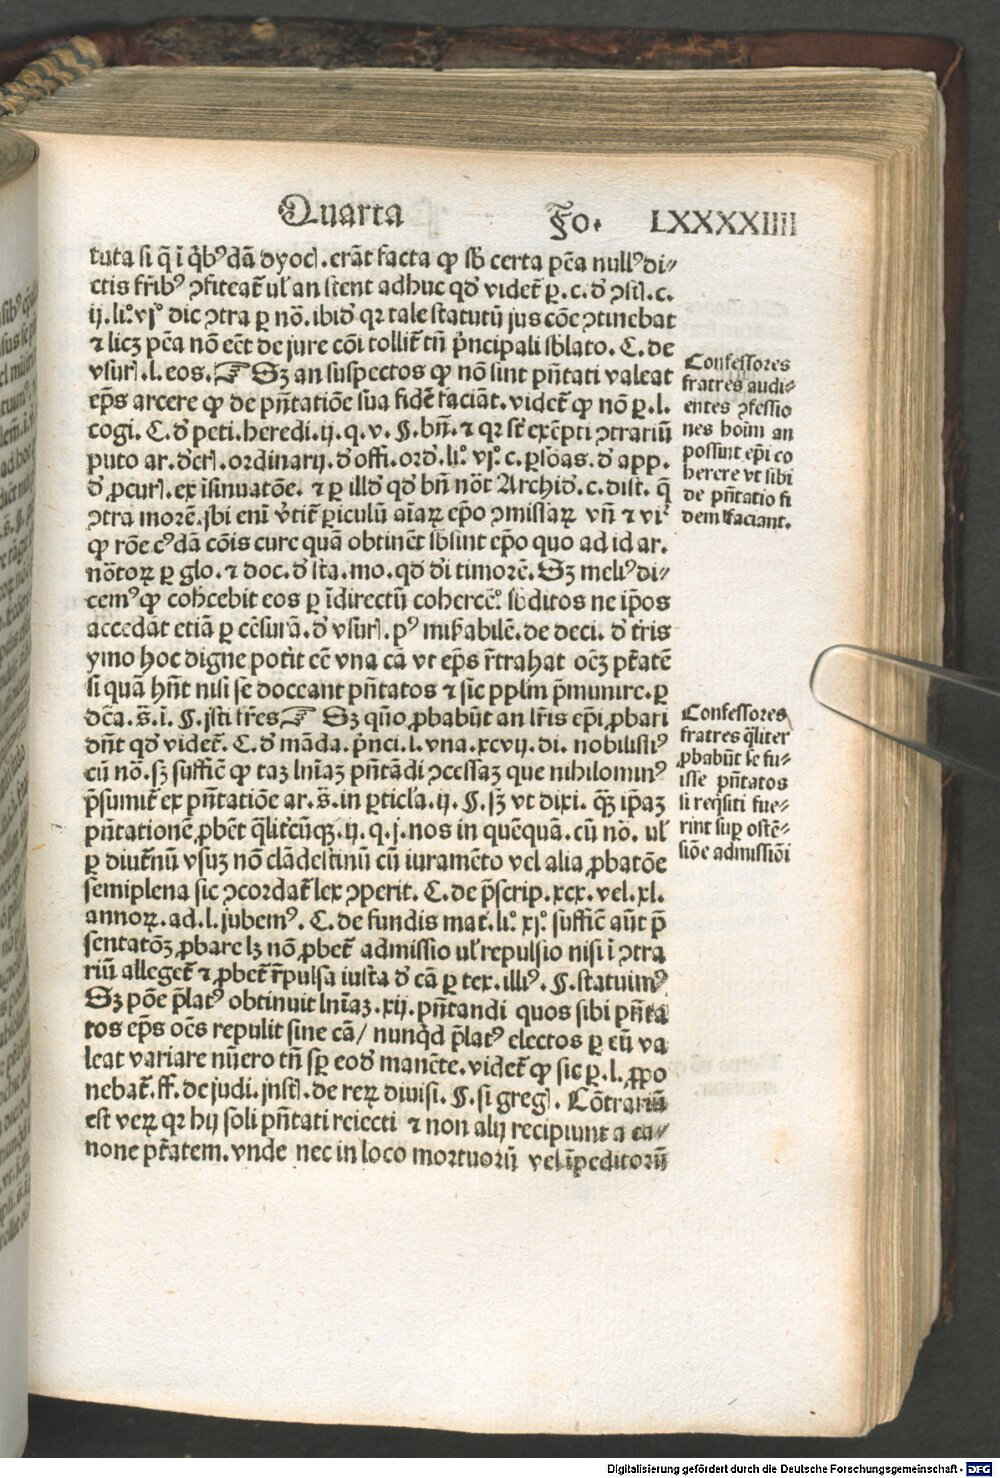 Quarta Fo. LXXXXIIII
tuta si q̄ ī q̄bꝰdā dyocꝭ.erāt facta ꝙ sb̄ certa pēa nullꝰdi⸗
ctis fr̄ibꝰ ꝯfiteat̄ ul̄ an stent adhuc qđ videt̄ ꝑ.c.đ ꝯstꝭ.c.
ij.li.vjͦ dic ꝯtra ꝑ nō.ibiđ qꝛ tale statutū jus cōe ꝯtinebat
⁊ licꝫ pēa nō eēt de jure cōi tollit̄ tn̄ p̄ncipali sb̄lato. C. de
vsurꝭ.l.eos.☞ Sꝫ an suspectos ꝙ nō sint pn̄tati valeat
ep̄s arcere ꝙ de pn̄tatiōe sua fidē faciāt.videt̄ ꝙ nō ꝑ.l.
cogi. C. đ peti.heredi.ij.q.v. ¶.bn̄.⁊ qꝛ st̄ exēpti ꝯtrariū
puto ar.đcrꝭ.ordinarij.đ offi.orđ.liͦ.vjͦ.c.ꝑsōas.đ app.
đ ꝓcurꝭ.ex īsinuatōe. ⁊ ꝑ illđ qđ bn̄ nōt Archiđ.c.dist. q̄
ꝯtra morē.jbi eni v̄tit̄ ꝑiculū aīaꝝ ep̄o ꝯmissaꝝ vn̄ ⁊ vi
ꝙ rōe cꝰdā cōis cure quā obtinēt sb̄sint ep̄o quo ad id ar.
nōtoꝝ ꝑ glo.⁊ doc.đ sta.mo.qđ đi timorē. Sꝫ meliꝰ di⸗
cemꝰ ꝙ coh̄cebit eos ꝑ īdirectū cohercēͦ sb̄ditos ne ip̄os
accedāt etiā ꝑ cēsurā.đ vsurꝭ.pꝰ mirabilē.de deci. đ tr̄is
ymo hoc digne potīt eē vna cā vt ep̄s r̄trahat oēꝫ pt̄atē
si quā hn̄t nisi se doceant pn̄tatos ⁊ sic pplm p̄munire.ꝑ
dēa.s̄.ī. ¶.jsti tr̄es☞ Sꝫ qūo ꝓbabūt an lr̄is ep̄i ꝓbari
dn̄t qđ videt̄. C. đ māda.p̄nci.l.vna.xcvij.di. nobilissiꝰ
cū nō.sꝫ suffic̄ ꝙ taꝫ lnīaꝫ pn̄tādi ꝯcessaꝫ que nihilominꝰ
p̄sumit̄ ex pn̄tatiōe ar.s̄.in ꝑticl̄a.ij. ¶.sꝫ vt dixi. qꝫ ip̄aꝫ
pn̄tationē ꝓbēt q̄lit̄cūqꝫ.ij.q.j.nos in quēquā.cū nō. ul̄
ꝑ diut̄nū vsuꝫ nō clādestinū cū iuramēto vel alia ꝓbatōe
semiplena sic ꝯcordat̄ lex ꝯperit. C. de p̄scrip.xxx.vel.xl.
annoꝝ.ad.l.jubemꝰ. C. de fundis mat̄.liͦ. xjͦ. suffic̄ aūt p̄
sentatōꝫ ꝓbare lꝫ nō ꝓbet̄ admissio ul̄ repulsio nisi ī ꝯtra
riū alleget̄ ⁊ ꝓbet̄ r̄pulsa iusta đ cā ꝑ tex.illiꝰ. ¶.statuimꝰ
Sꝫ pōe p̄latꝰ obtinuit lnīaꝫ.xij.pn̄tandi quos sibi pn̄ta
tos ep̄s oēs repulit sine cā/ nunq̄d p̄latꝰ electos ꝑ eū va
leat variare nūero tn̄ sꝑ eođ manēte.videt̄ ꝙ sic ꝑ.l.ꝓpo
nebat̄.ff.de judi.jnstꝭ.de reꝝ divisi. ¶.si gregꝭ. Cōtrariū
est veꝝ qꝛ hij soli pn̄tati reiecti ⁊ non alij recipiunt a ca⸗
none pt̄atem.vnde nec in loco mortuorū vel īpeditorū
Confessores
fratres audi⸗
entes ꝯfessio
nes hoīm an
possint ep̄i co
hercere vt sibi
de pn̄tatio fi
dem faciant.
Confessores
fratres q̄liter
ꝓbabūt se fu⸗
isse pn̄tatos
si req̄siti fue⸗
rint suꝑ ostē⸗
siōe admissiōi
Digitalisierung gefördert durch die Deutsche Forschungsgemeinschaft - DFG